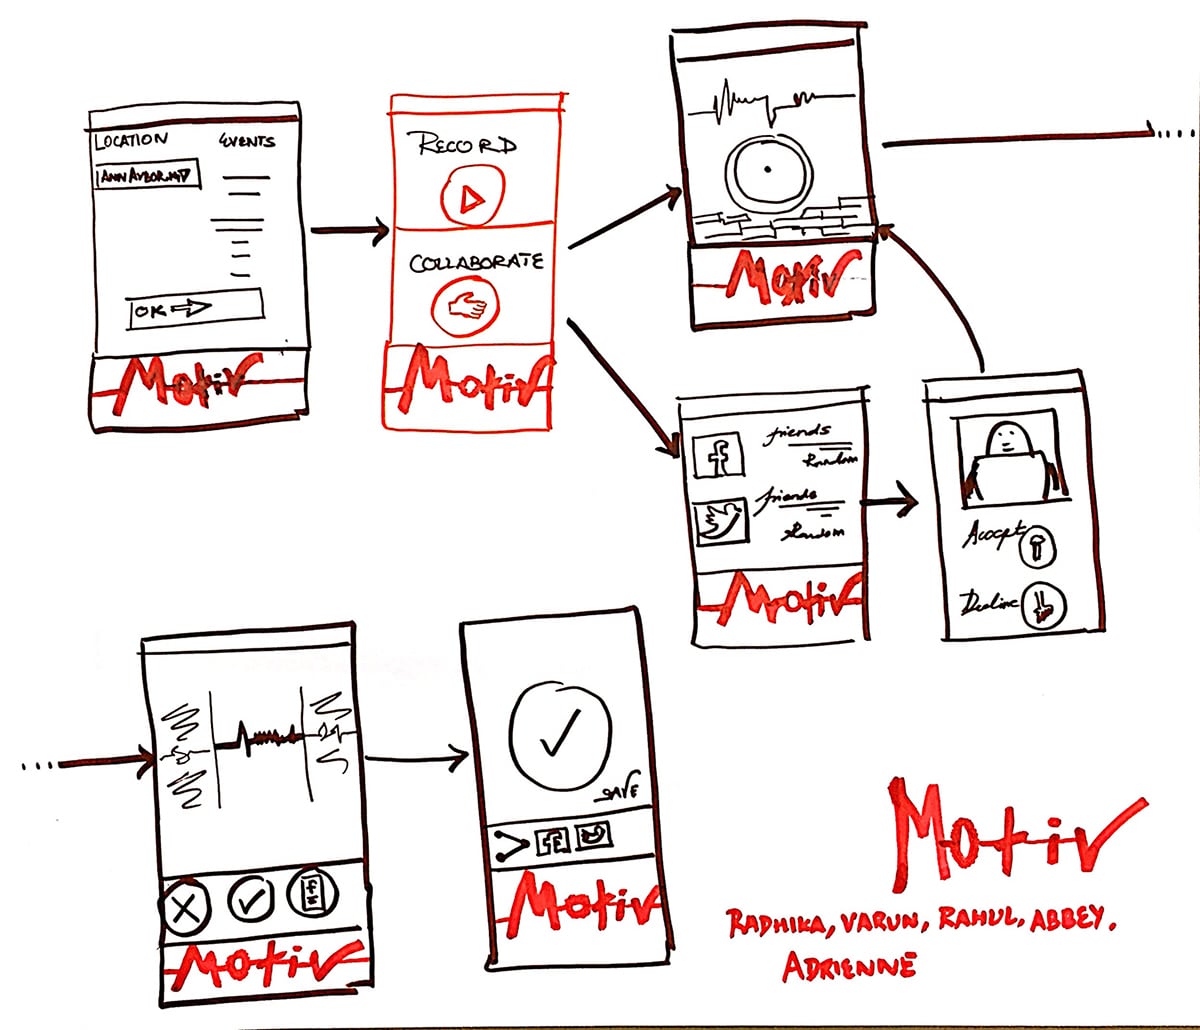 LOCATION
EVENTS
ANN ARBOR, MI
OK
Motiv
RECORD
COLLABORATE
Motiv
Motiv
f
friends
Random
friends
Random
Motiv
Accept
Decline
f
Motiv
SAVE
f
Motiv
Motiv
RADHIKA, VARUN, RAHUL, ABBEY,
ADRIENNE